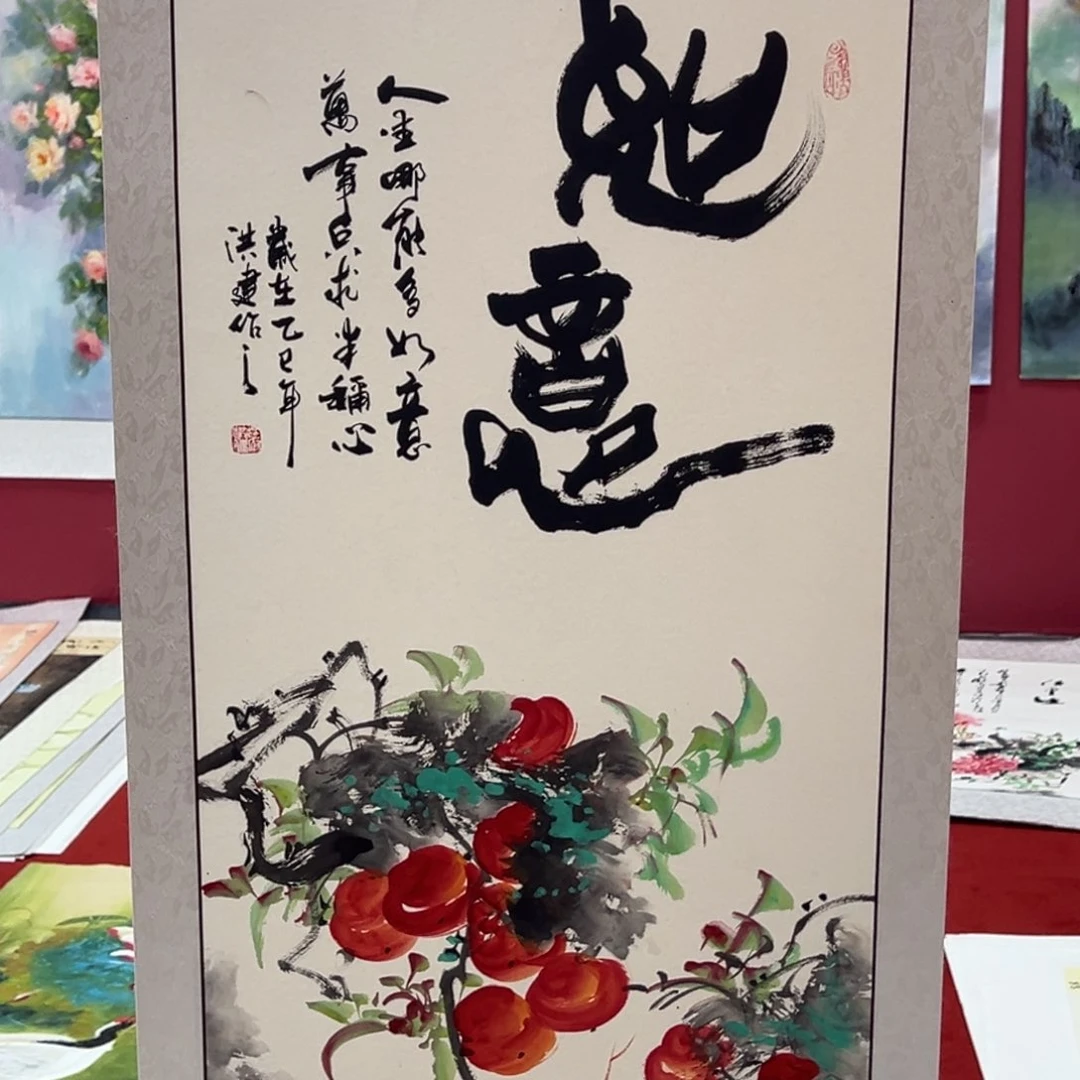 如意
人生哪能多如意
萬事只求半稱心
歲在乙巳年
洪建作之